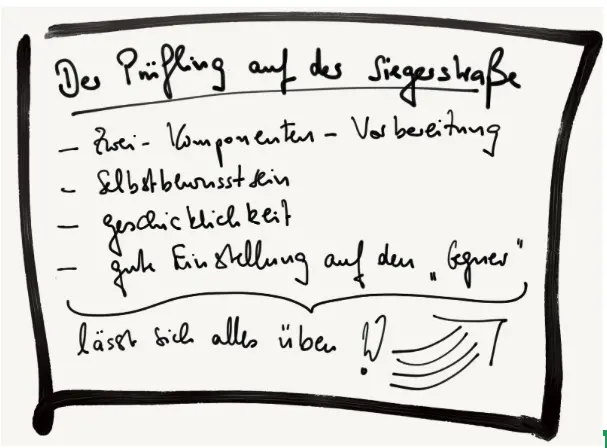 Der Prüfling auf der Siegerstraße
– Zwei-Komponenten-Vorbereitung
– Selbstbewusstsein
– geschicklichkeit
– gute Einstellung auf den „Gegner“
lässt sich alles üben!